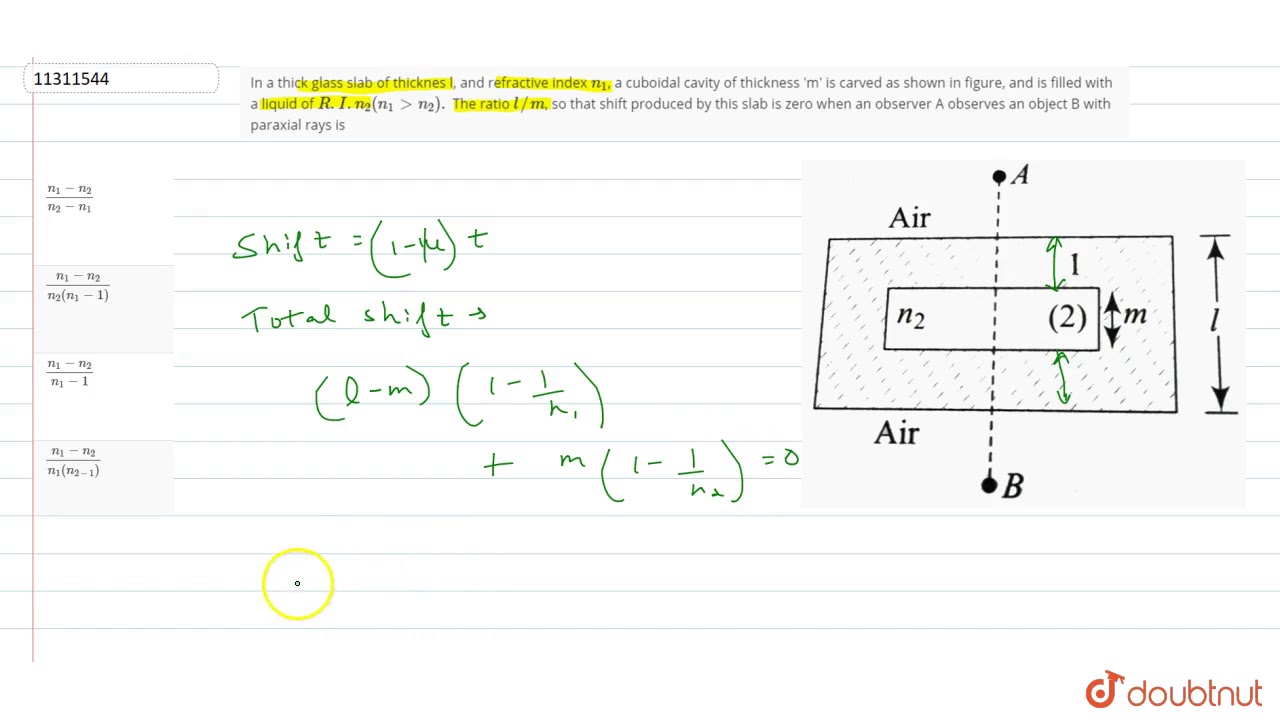 11311544
In a thick glass slab of thicknes l, and refractive index n₁, a cuboidal cavity of thickness 'm' is carved as shown in figure, and is filled with
a liquid of R. I. n₂(n₁ > n₂). The ratio l/m, so that shift produced by this slab is zero when an observer A observes an object B with
paraxial rays is
(n₁ − n₂)/(n₂ − n₁)
(n₁ − n₂)/(n₂(n₁ − 1))
(n₁ − n₂)/(n₁ − 1)
(n₁ − n₂)/(n₁(n₂₋₁))
Shift = (1-1/μ) t
Total shift →
(l-m) (1 - 1/n₁)
+ m (1 - 1/n₂) = 0
A
Air
1
n₂ (2) m
l
Air
B
doubtnut